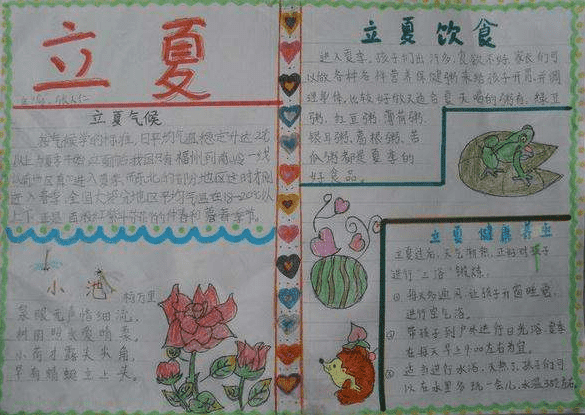 立夏
立夏气候
按气候学的标准，日平均气温稳定升达22℃
以上为夏季开始，立夏前后，我国只有福州到南岭一线
以南地区真正进入夏季，而东北和西北的部分地区这时才刚
进入春季，全国大部分地区平均气温在18～20℃
上下，正是百般红紫斗芳菲的仲春和暮春季节。
小池
杨万里
泉眼无声惜细流，
树阴照水爱晴柔。
小荷才露尖尖角，
早有蜻蜓立上头。
立夏饮食
进入夏季，孩子们出汗多，食欲不好，家长们可
以做各种各样营养保健粥来给孩子开胃，并调
理身体，比较好做又适合夏天喝的粥有：绿豆
粥、红豆粥、薄荷粥、
银耳粥、葛根粥、苦
瓜粥都是夏季的
好食品。
立夏健康养生
立夏过后，天气渐热，正好对孩子
进行“三浴”锻炼。
① 每天勤通风，让孩子开窗睡觉，
进行空气浴。
② 带孩子到户外进行日光浴，夏季
在每天早上9:00左右为宜。
③ 适当进行水浴，天热了，孩子们可
以在水里多玩一会儿，水温35℃左右